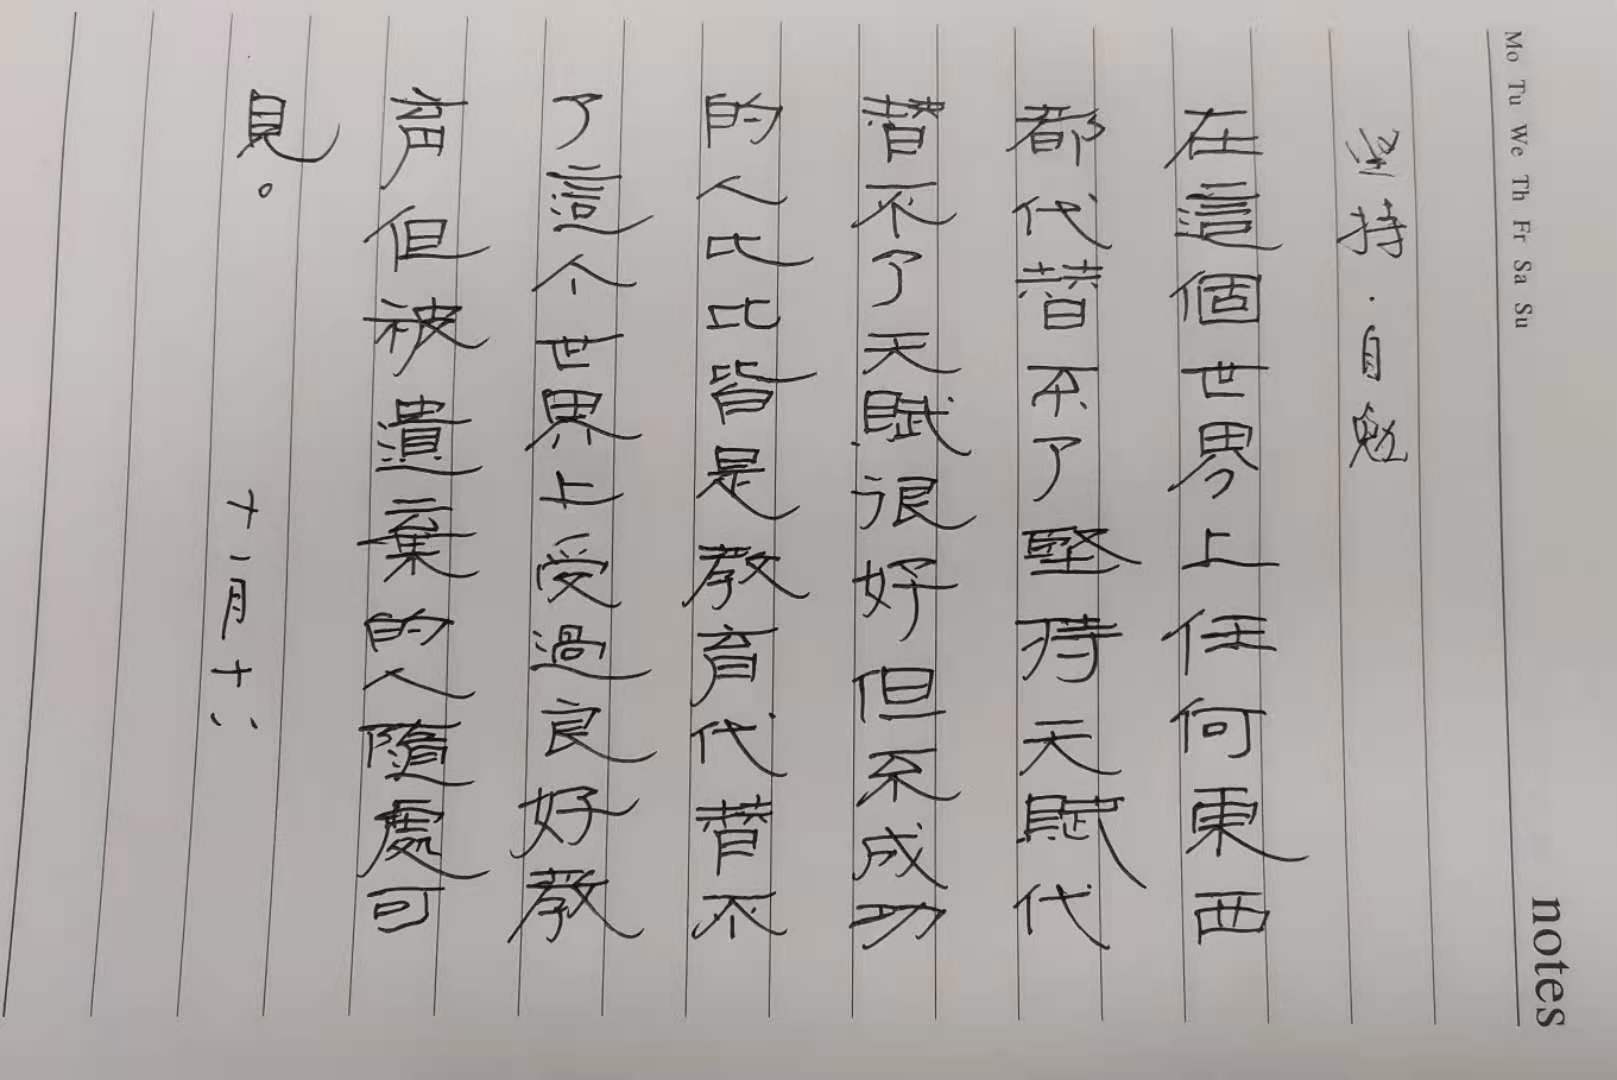 Mo Tu We Th Fr Sa Su
notes
坚持·自勉
在這個世界上任何東西
都代替不了堅持天賦代
替不了天賦很好但不成功
的人比比皆是教育代替不
了這个世界上受過良好教
育但被遺棄的人隨處可
見。
十一月十六